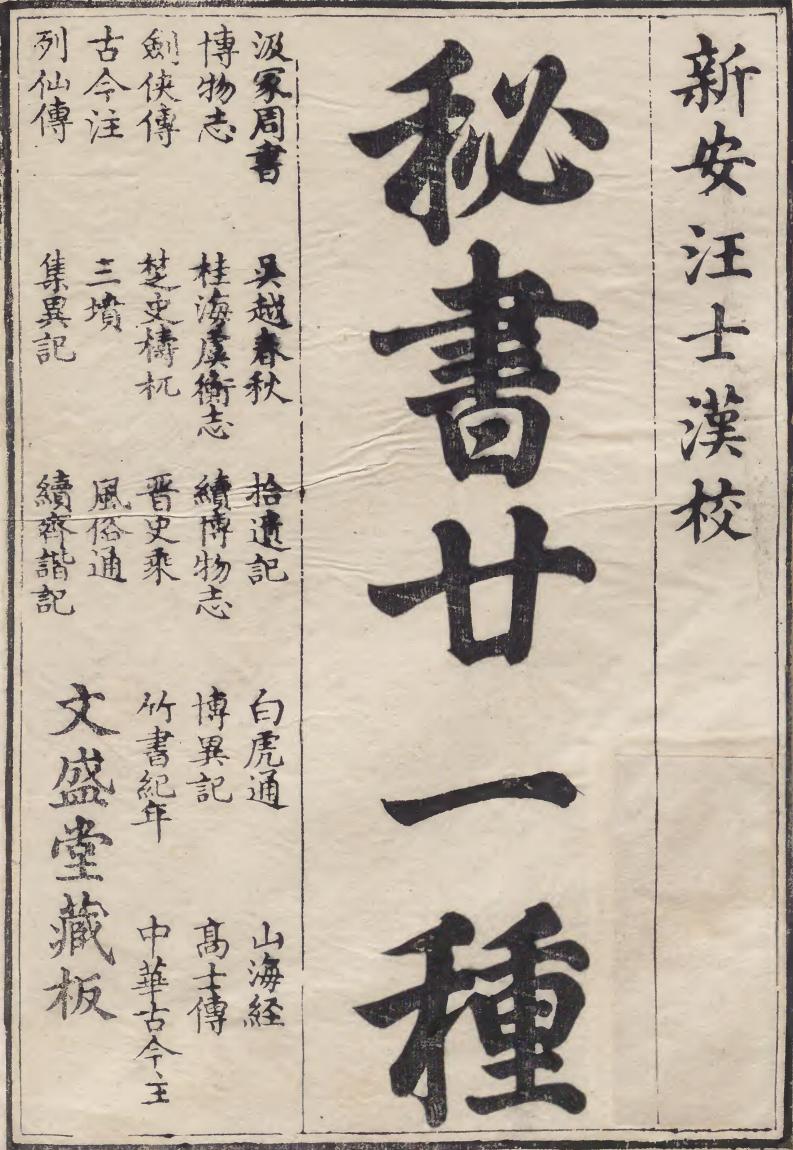 新安汪士漢校
秘書廿一種
汲冢周書 吳越春秋 拾遺記 白虎通 山海経
博物志 桂海虞衡志 續博物志 博異記 高士傳
劍俠傳 楚史檮杌 晋史乘 竹書紀年 中華古今主
古今注 三墳 風俗通
列仙傳 集異記 續齊諧記
文盛堂藏板